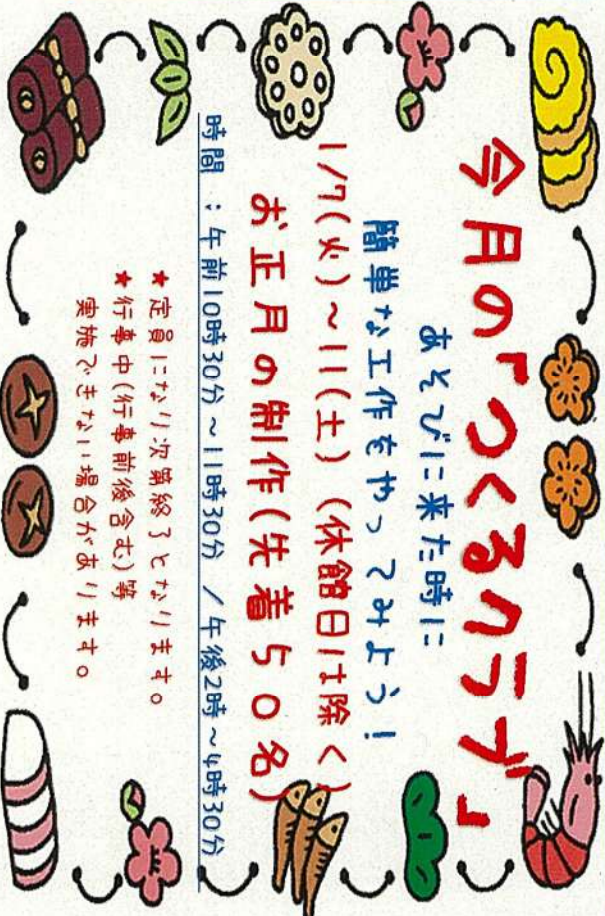 今月の「つくるクラブ」
あそびに来た時に
簡単な工作をやってみよう！
1/7(火)～11(土) (休館日は除く)
お正月の制作(先着50名)
時間 ：午前10時30分～11時30分 / 午後2時～4時30分
★定員になり次第終了となります。
★行事中(行事前後含む)等
実施できない場合があります。